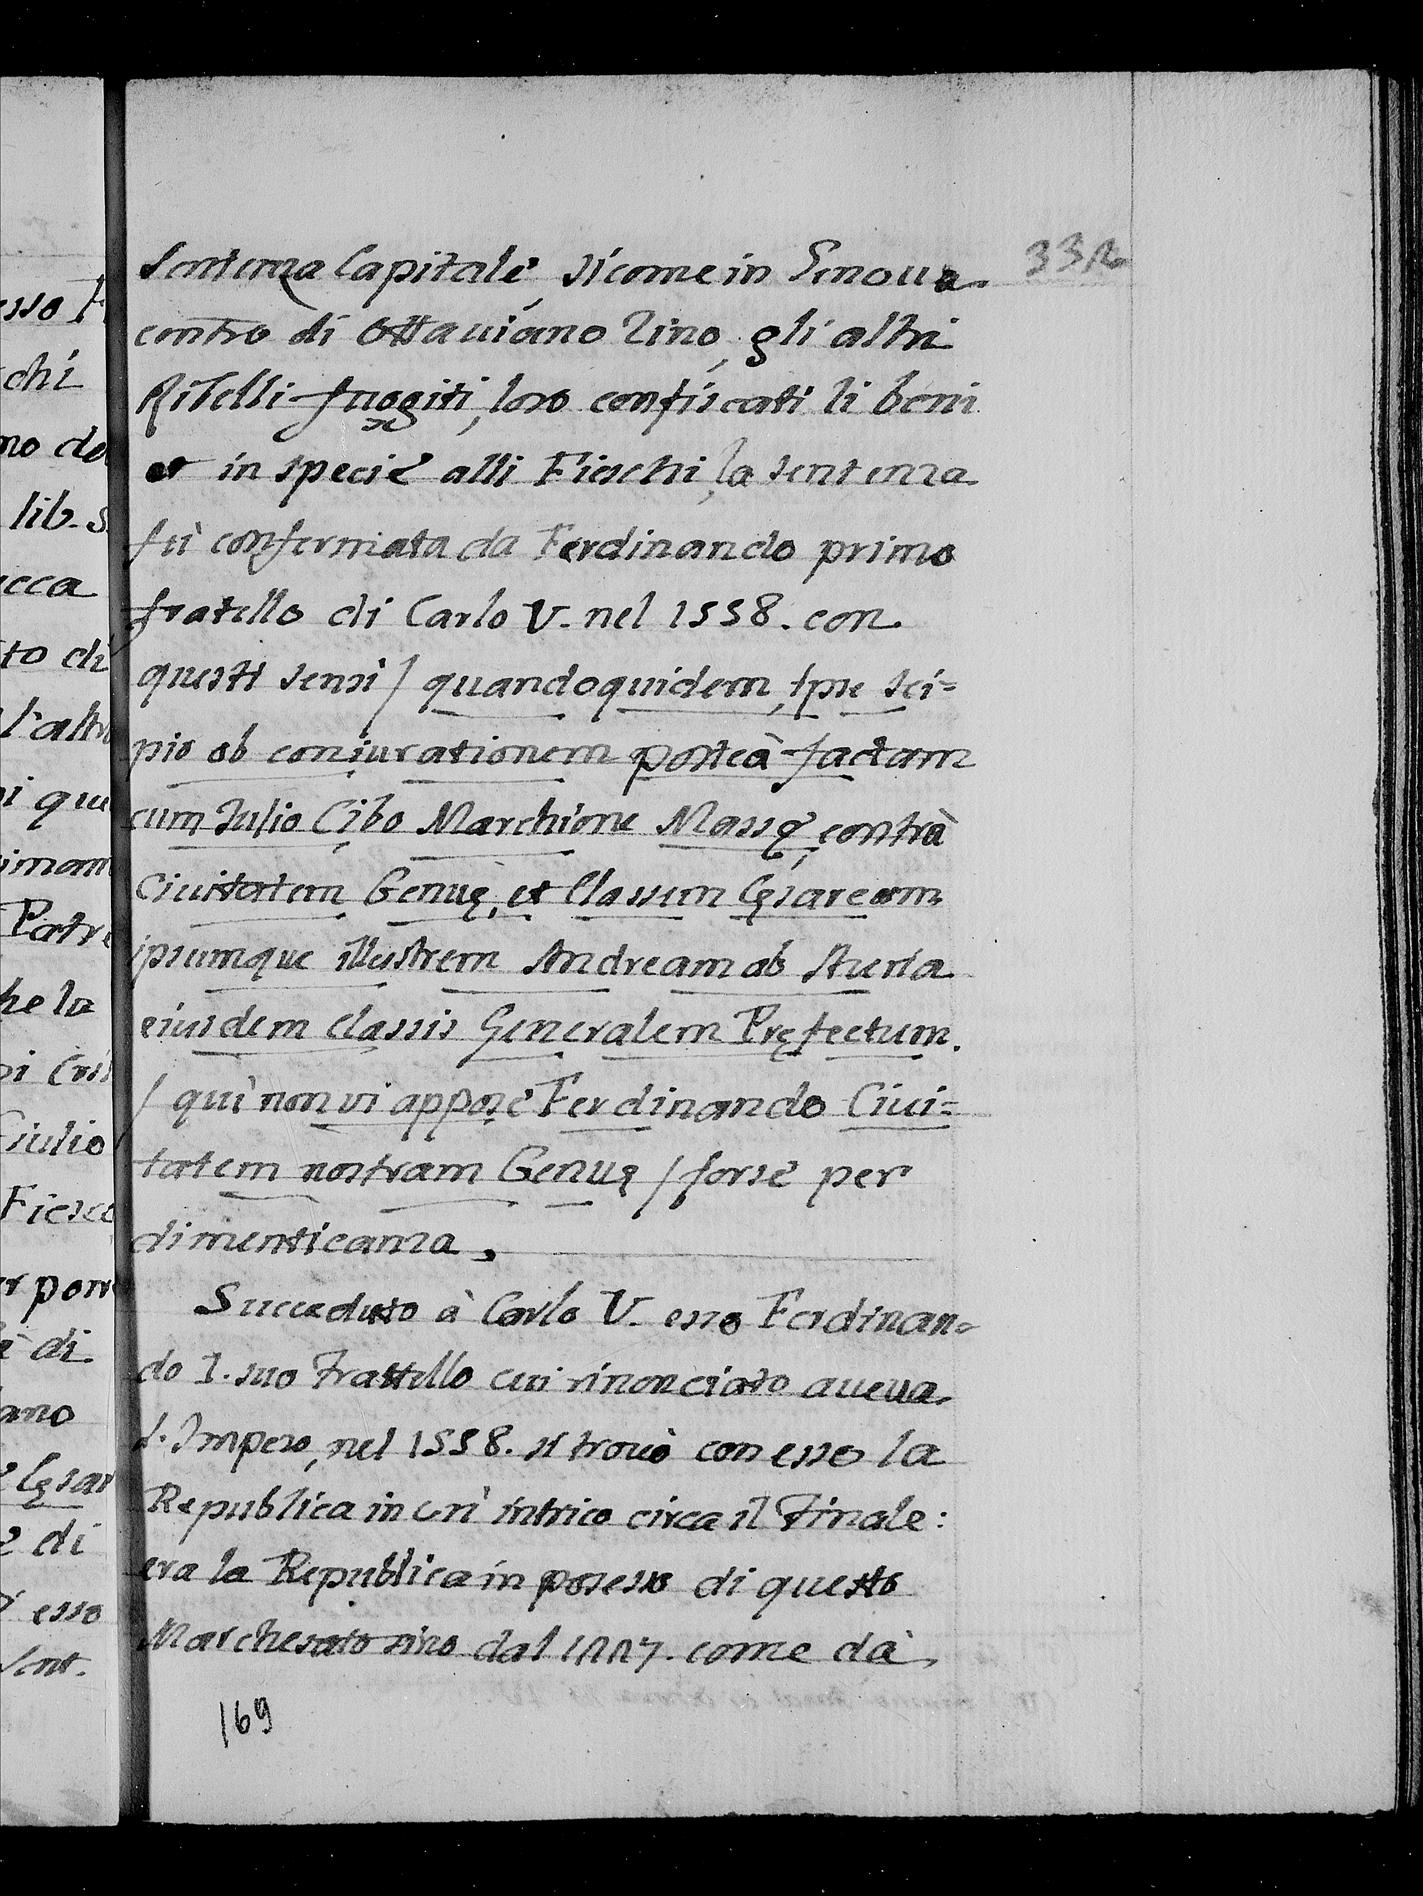 332
Sentenza Capitale, sicome in Genoua
contro di Ottauiano Zino, gli altri
Ribelli fuogiti, loro confiscati li beni
et in specie alli Fieschi, la sentenza
fù confermata da Ferdinando primo
fratello di Carlo V. nel 1558. con
questi sensi / quandoquidem, ipse Sci=
pio ob coniurationem posteà factam
cum Julio Cibo Marchione Massę, contrà
Ciuitatem Genuę, et Classem Cęsaream
ipsumque illustrem Andream ab Auria
eiusdem classis Generalem Pręfectum.
/ quì non vi appose Ferdinando Ciui=
tatem nostram Genuę / forse per
dimenticanza,
Succeduto à Carlo V. esso Ferdinan=
do I. suo Frattello cui rinonciato aueua
l'Impero, nel 1558. si trouò con esso la
Republica in un' intrico circa il Finale:
era la Republica in posesso di questo
Marchesato sino dal come dà
169
esso F
chi
no de
lib. s.
ucca
to di
l'altr
i que
Patre
he la
Giulio
Fiesco
er porr
è di
ano
e Cęsar
e di
esso
Sent.